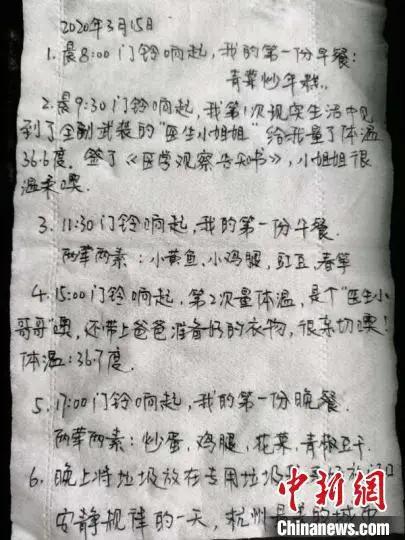 2020年3月15日
1. 晨8:00 门铃响起，我的第一份早餐：
青菜炒年糕。
2. 晨9:30 门铃响起，我第1次现实生活中见
到了全副武装的"医生小姐姐"给我量了体温
36.6度。签了《医学观察告知书》，小姐姐很
温柔噢。
3. 11:30 门铃响起，我的第一份午餐.
两荤两素：小黄鱼、小鸡腿、豇豆、春笋
4. 15:00 门铃响起，第2次量体温，是个"医生小
哥哥"噢，还带上爸爸准备好的衣物，很亲切噢！
体温：36.7度.
5. 17:00 门铃响起，我的第一份晚餐.
两荤两素：炒蛋、鸡腿、花菜、青椒豆干.
6. 晚上将垃圾放在专用垃圾
安静规律的一天，杭州是
中新网
www.chinanews.com